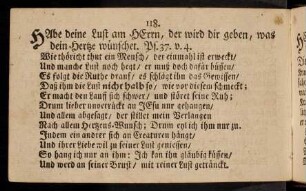 118.
HAbe deine Lust am HErrn, der wird dir geben, was
dein Hertze wünschet. Ps. 37. v. 4.
Wie thöricht thut ein Mensch, der einmahl ist erweckt,
Und manche Lust noch hegt, er muß doch dafür büssen,
Es folgt die Ruthe drauf, es schlägt ihn das Gewissen,
Daß ihm die Lust nicht halb so, wie vor diesem schmeckt;
Er macht den Lauff sich schwer, und störet seine Ruh;
Drum lieber unverrückt an JEsu nur gehangen,
Und allem abgesagt, der stillet mein Verlangen
Nach allem Hertzens-Wunsch; Drum eyl ich ihm nur zu.
Indem ein andrer sich an Creaturen hängt,
Und ihrer Liebe wil zu seiner Lust geniessen,
So hang ich nur an ihm; Ich kan ihn gläubig küssen,
Und werd an seiner Brust, mit reiner Lust getränckt.